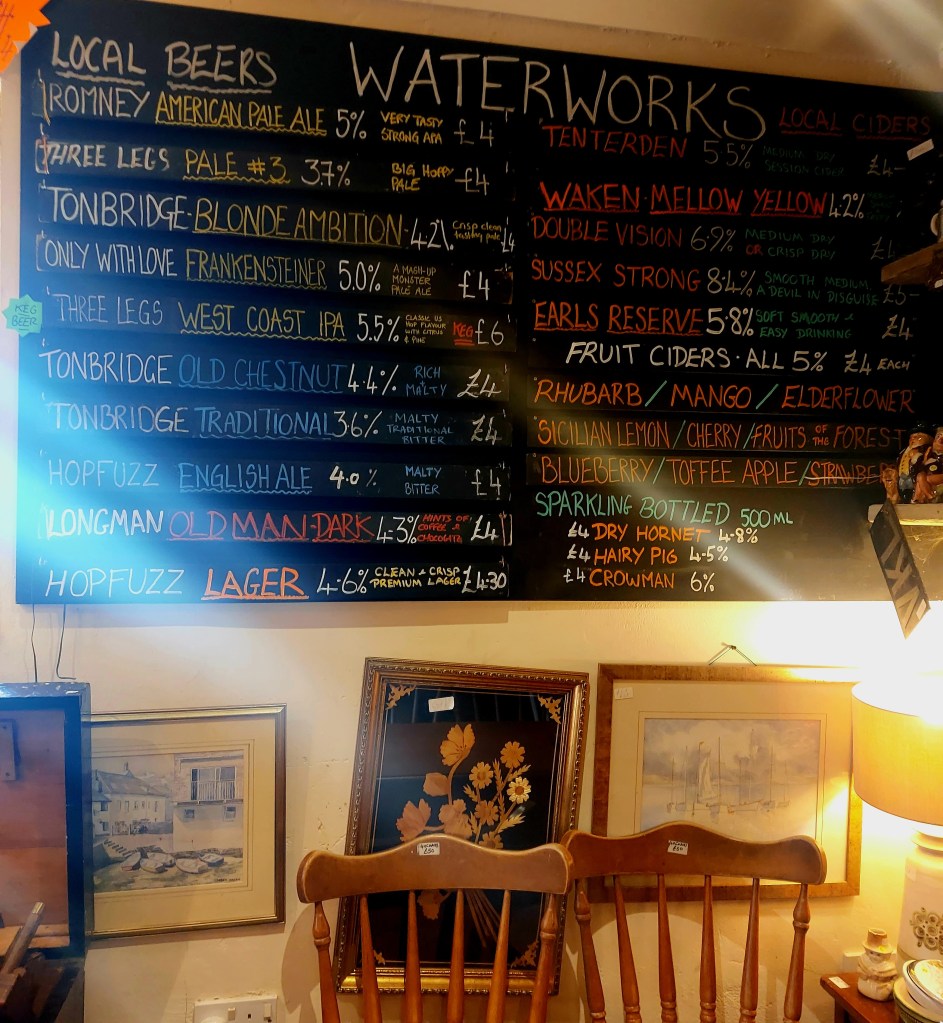 WATERWORKS
LOCAL BEERS
ROMNEY AMERICAN PALE ALE 5% VERY TASTY STRONG APA £4
THREE LEGS PALE #3 3.7% BIG HOPPY PALE £4
TONBRIDGE-BLONDE AMBITION-4.2%. Crisp clean tasting pale £4
ONLY WITH LOVE FRANKENSTEINER 5.0% A MASH-UP MONSTER PALE ALE £4
KEG BEER
THREE LEGS WEST COAST IPA 5.5% CLASSIC US HOP FLAVOUR WITH CITRUS & PINE KEG £6
TONBRIDGE OLD CHESTNUT 4.4% RICH + MALTY £4
TONBRIDGE TRADITIONAL 3.6% MALTY TRADITIONAL BITTER £4
HOPFUZZ ENGLISH ALE 4.0% MALTY BITTER £4
LONGMAN OLD MAN-DARK 4.3% HINTS OF COFFEE & CHOCOLATE £4
HOPFUZZ LAGER 4.6% CLEAN + CRISP PREMIUM LAGER £4.30
LOCAL CIDERS
TENTERDEN 5.5% MEDIUM DRY SESSION CIDER £4-
WAKEN-MELLOW YELLOW 4.2%
DOUBLE VISION 6.9% MEDIUM DRY OR CRISP DRY
SUSSEX STRONG 8.4% SMOOTH MEDIUM A DEVIL IN DISGUISE £5-
EARLS RESERVE 5.8% SOFT SMOOTH & EASY DRINKING £4
FRUIT CIDERS. ALL 5% £4 EACH
RHUBARB / MANGO / ELDERFLOWER
SICILIAN LEMON / CHERRY / FRUITS OF THE FOREST
BLUEBERRY / TOFFEE APPLE / STRAWBE
SPARKLING BOTTLED 500ML
£4 DRY HORNET 4.8%
£4 HAIRY PIG 4.5%
£4 CROWMAN 6%
£50
£50